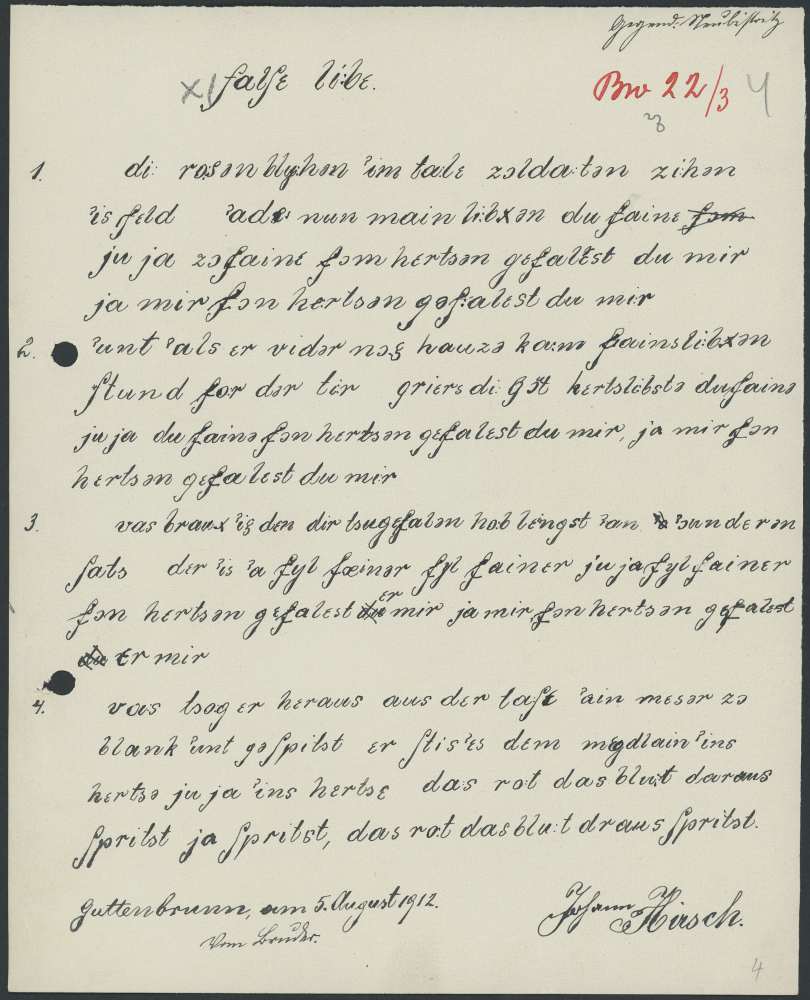 Gegend: Neubistritz
x) falʃɛ li:bɛ.
Bw 22/3 4
1. di: ro:sən bly:hən 'im ta:lɛ zɔlda:tən zi:hən
'is fɛld 'adɛ: nun main li:bxən du fainɛ fɔm
ju ja zɔ fainɛ fɔm hɛrtsən gɛfalɛst du mir
ja mir fɔn hɛrtsən gəfalɛst du mir
2. 'unt 'als ɛr vidər nɔx hauzə ka:m fainsli:bxən
ʃtund fɔr dər tɛr griɛrs di: gɔt hɛrtslɛbstə du fainə
ju ja du fainə fɔn hɛrtsən gɛfalɛst du mir, ja mir fɔn
hɛrtsən gɛfalɛst du mir
3. vas braux 'iç dɛn dir tsugɛfalən hɔb lɛngst 'an 'ɔundɛrən
ʃats dɛr 'is 'a fyl fæinər fyl fainɛr ju ja fyl fainɛr
fɔn hɛrtsən gɛfalɛst du er mir ja mir fɔn hɛrtsən gɛfalɛst
du ɛr mir
4. vas tsog ɛr hɛraus aus dɛr taʃɛ 'ain mɛsər zɔ
blank 'unt gəʃpitst ɛr ʃtis 'ɛs dɛm mɛgdlain 'ins
hɛrtsə ju ja 'ins hɛrtsɛ das rot das blu:t daraus
ʃpritst ja ʃpritst, das ro:t das blu:t draus ʃpritst.
Guttenbrunn, am 5. August 1912. Johann Hirsch.
Vom Bruder.
4